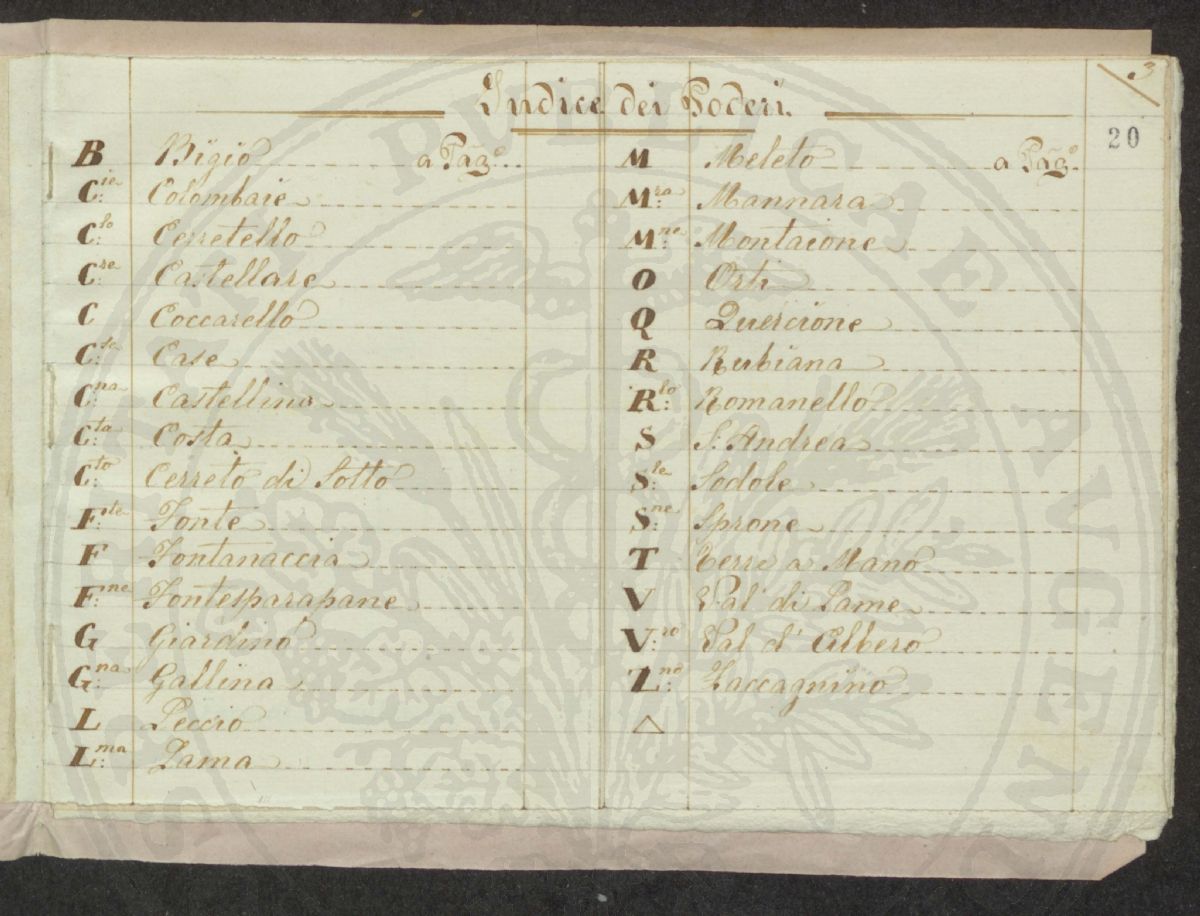 3
Indice dei Poderi.
20
B Bigio a Pag.
C:ie Colombaie
C:lo Cerretello
C:re Castellare
C Coccarello
C:se Case
C:na Castellina
C:ta Costa
C:to Cerreto di Sotto
F:te Fonte
F Fontanaccia
F:ne Fontesparapane
G Giardino
G:na Gallina
L Leccio
L:ma Lama
M Meleto a Pag.
M:ra Mannara
M:ne Montaione
O Orti
Q Quercione
R Rubiana
R:lo Romanello
S S. Andrea
S:le Sodole
S:ne Sprone
T Terre a Mano
V Val di Lame
V:ro Val d'Albero
Z:no Zaccagnino